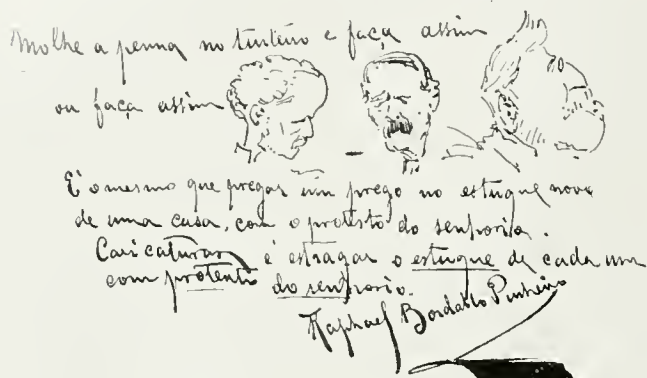 Molhe a penna no tinteiro e faça assim
ou faça assim
É o mesmo que pregar um prego no estuque novo
de uma casa, com o protesto do senhorio.
Caricaturar é estragar o estuque de cada um
com protesto do senhorio.
Raphael Bordallo Pinheiro